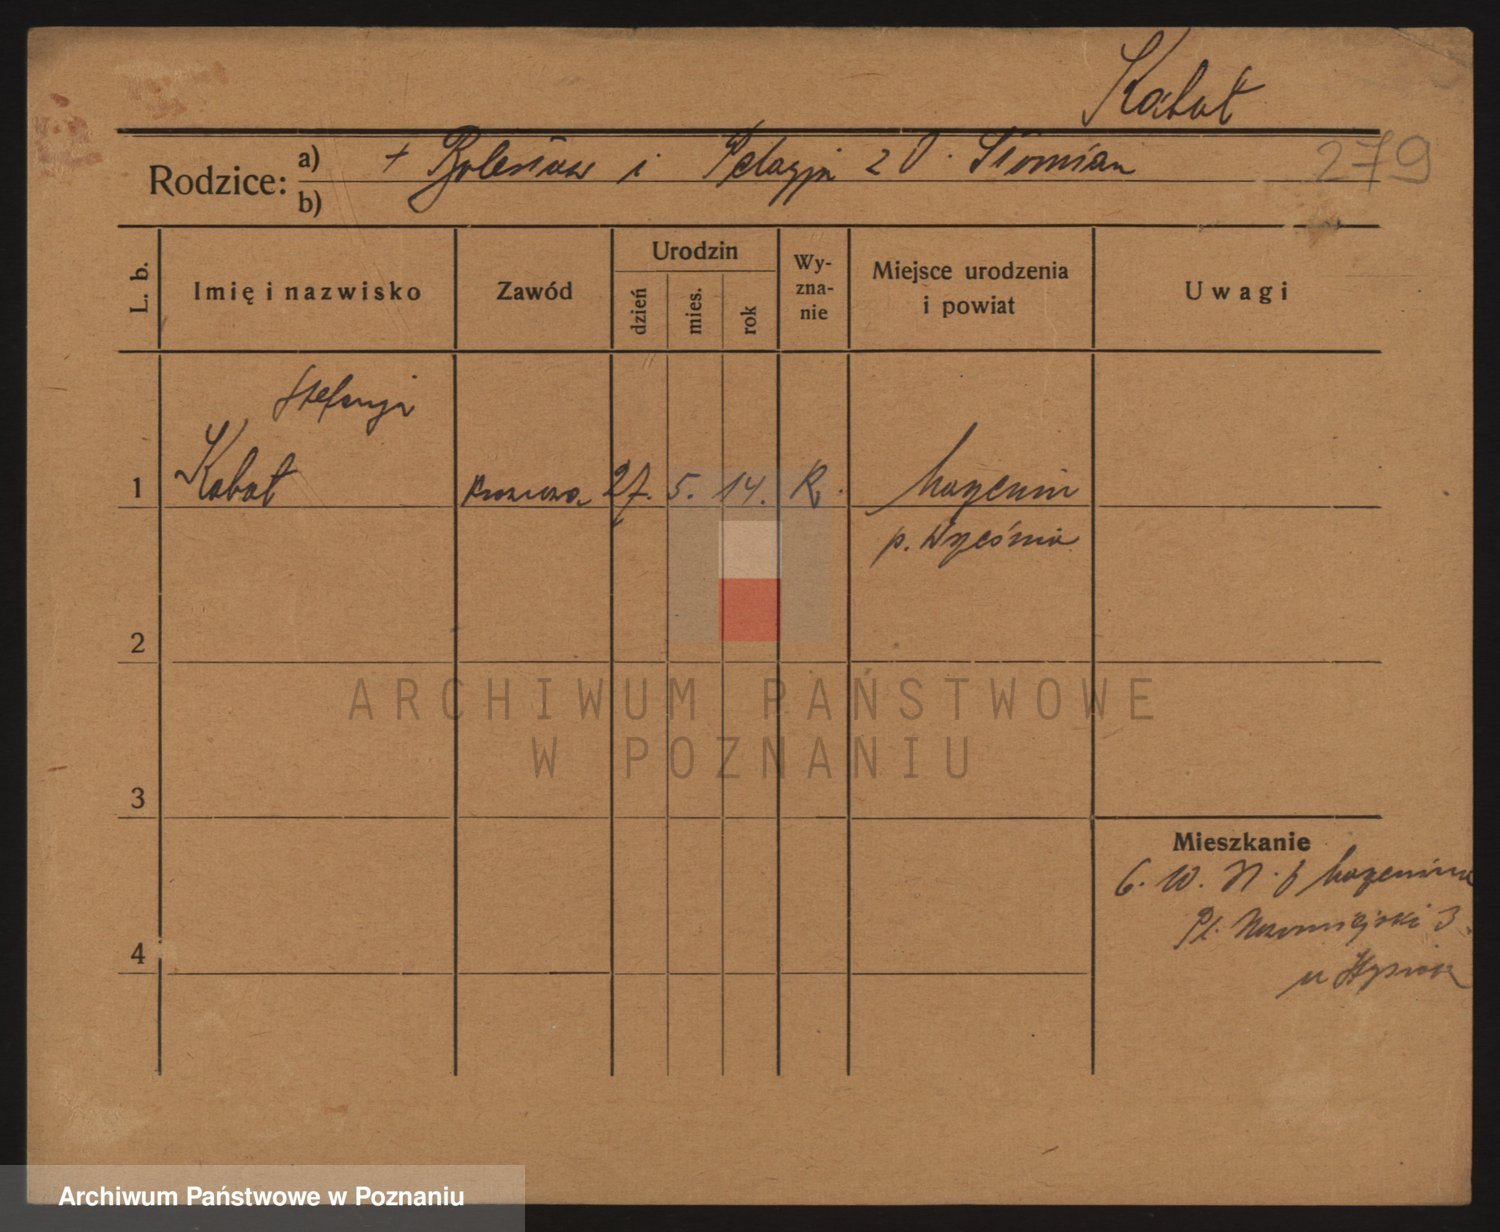 Kabat
Rodzice: a) + Bolesław i Pelagja z D. Słomian
b)
279
L. b.
Imię i nazwisko
Zawód
Urodzin
dzień
mies.
rok
Wy-
zna-
nie
Miejsce urodzenia
i powiat
Uwagi
Stefanja
1 Kabat 27. 5. 14. R.
2
3
4
Mieszkanie
6. 10. 
Pl. 3
u
ARCHIWUM PAŃSTWOWE
W POZNANIU
Archiwum Państwowe w Poznaniu